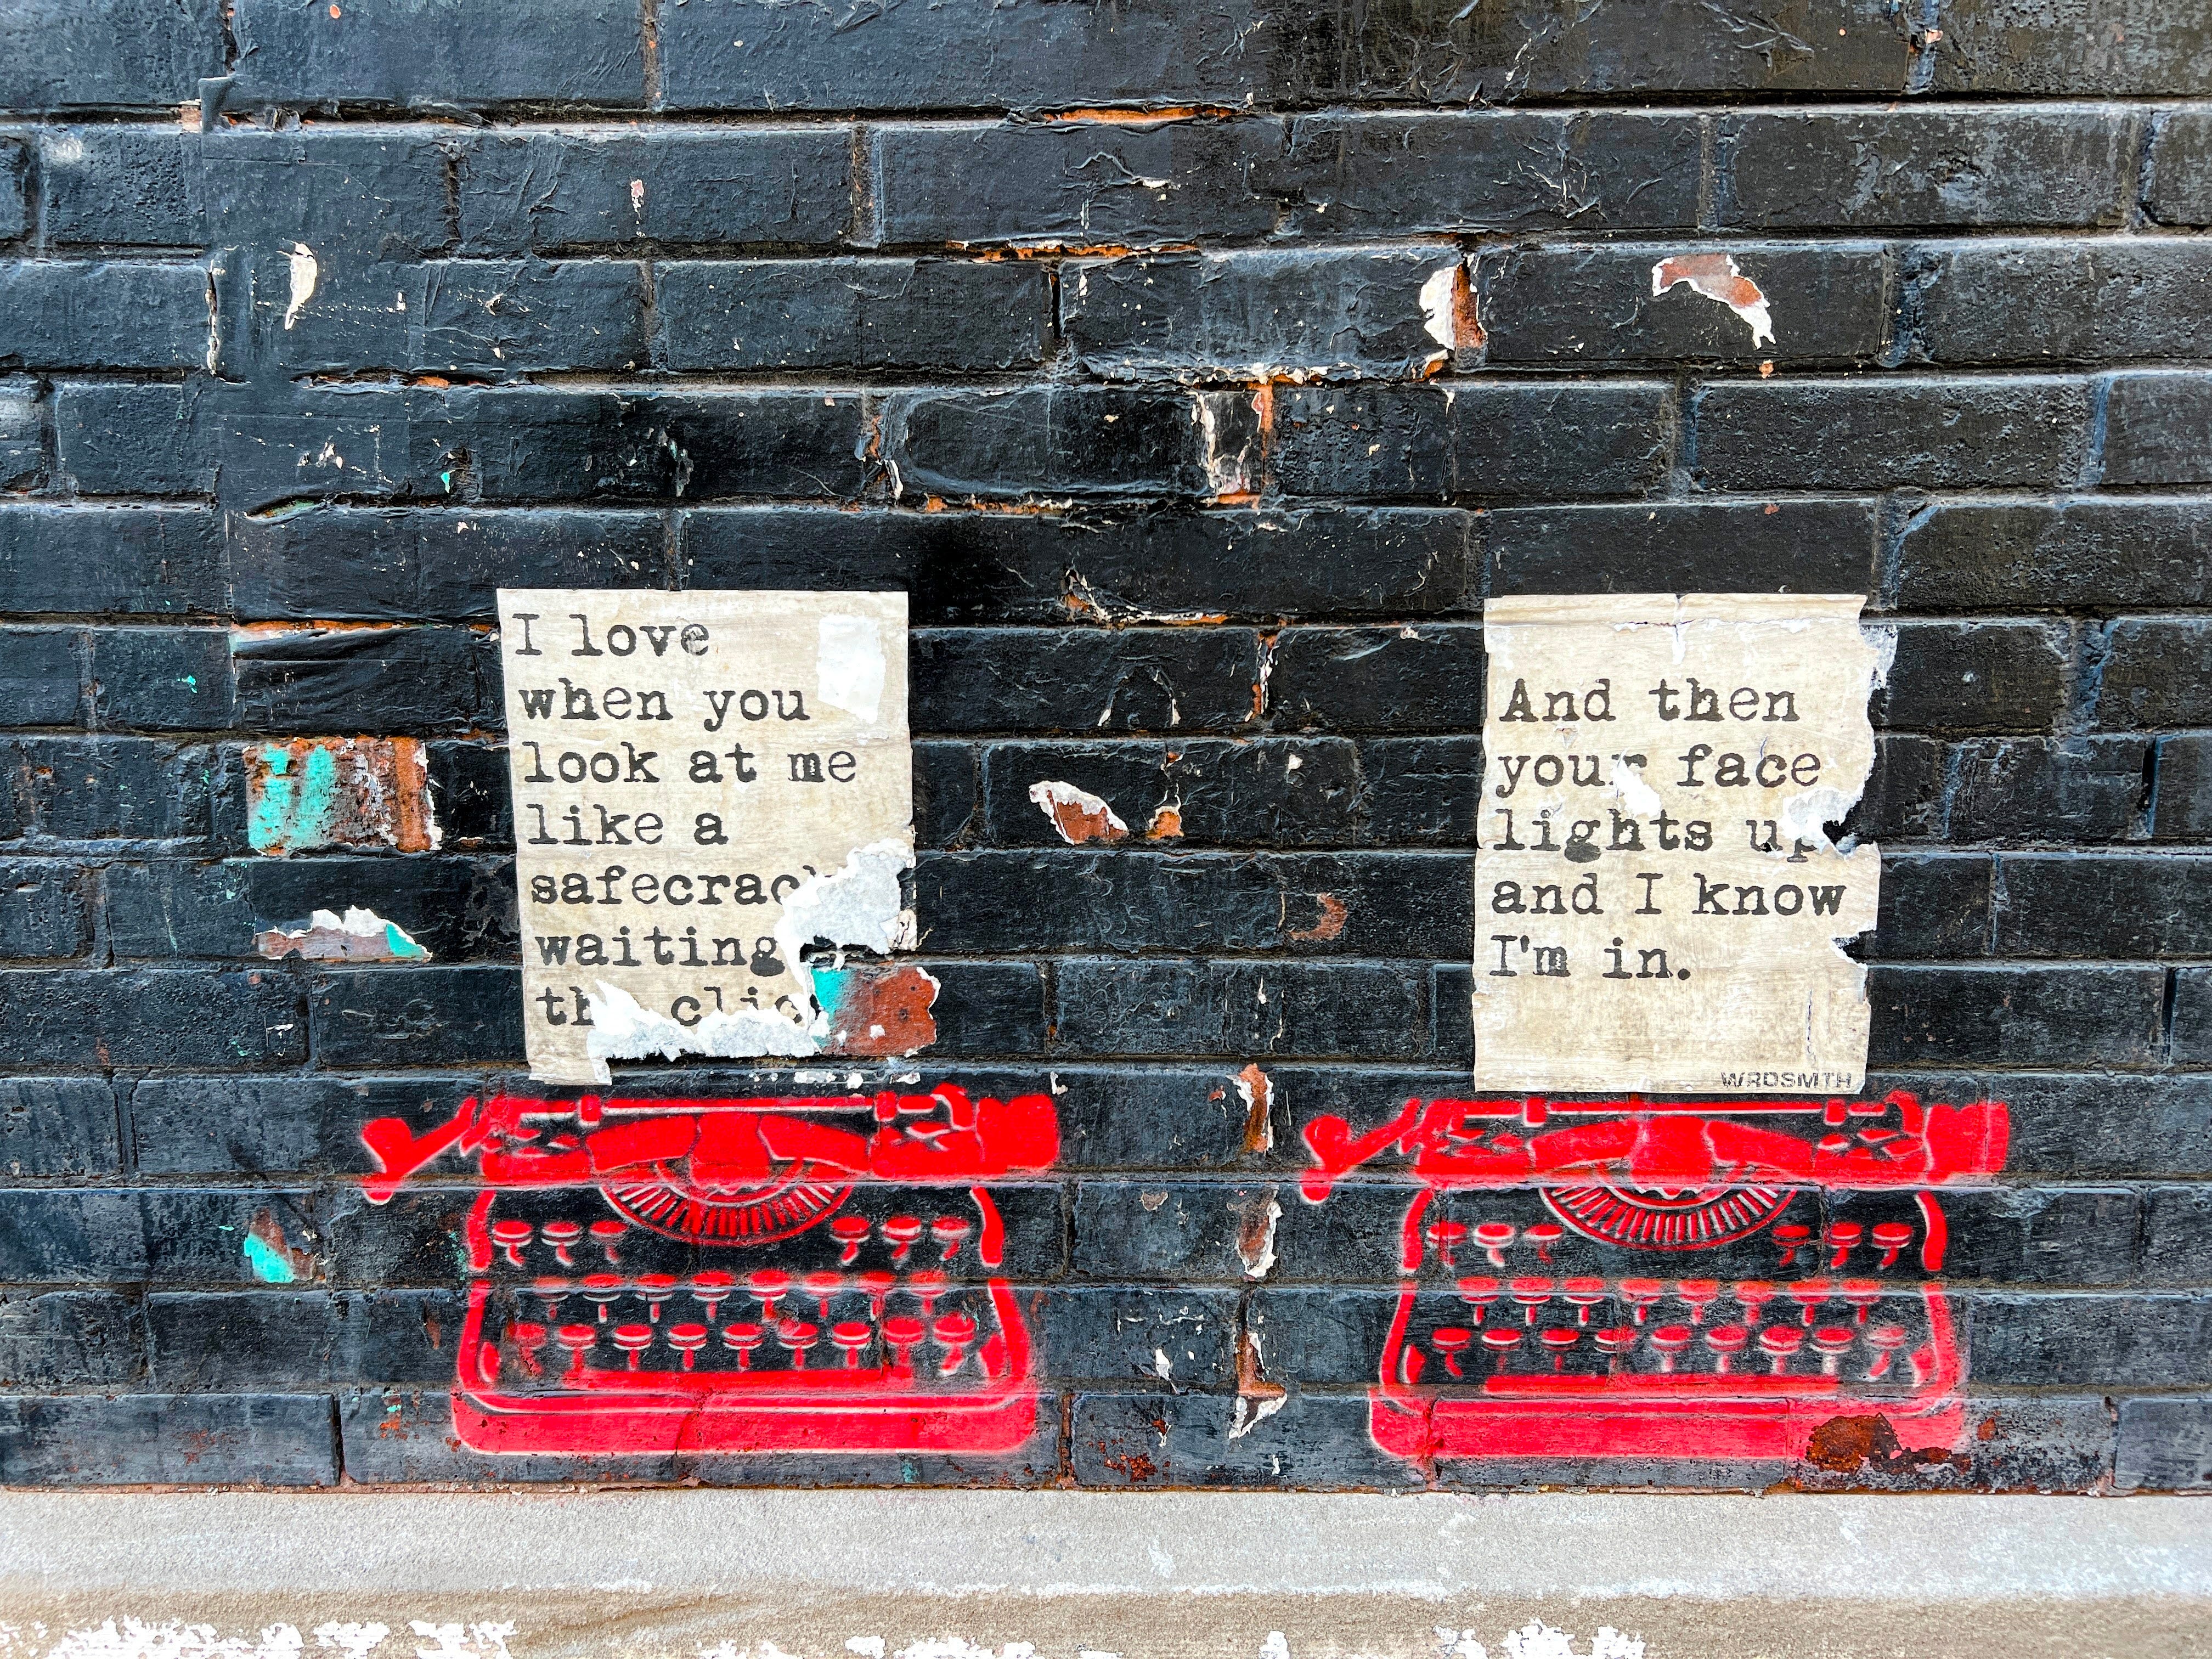 I love
when you
look at me
like a
safecrac
waiting
th clic
And then
your face
lights up
and I know
I'm in.
WRDSMTH